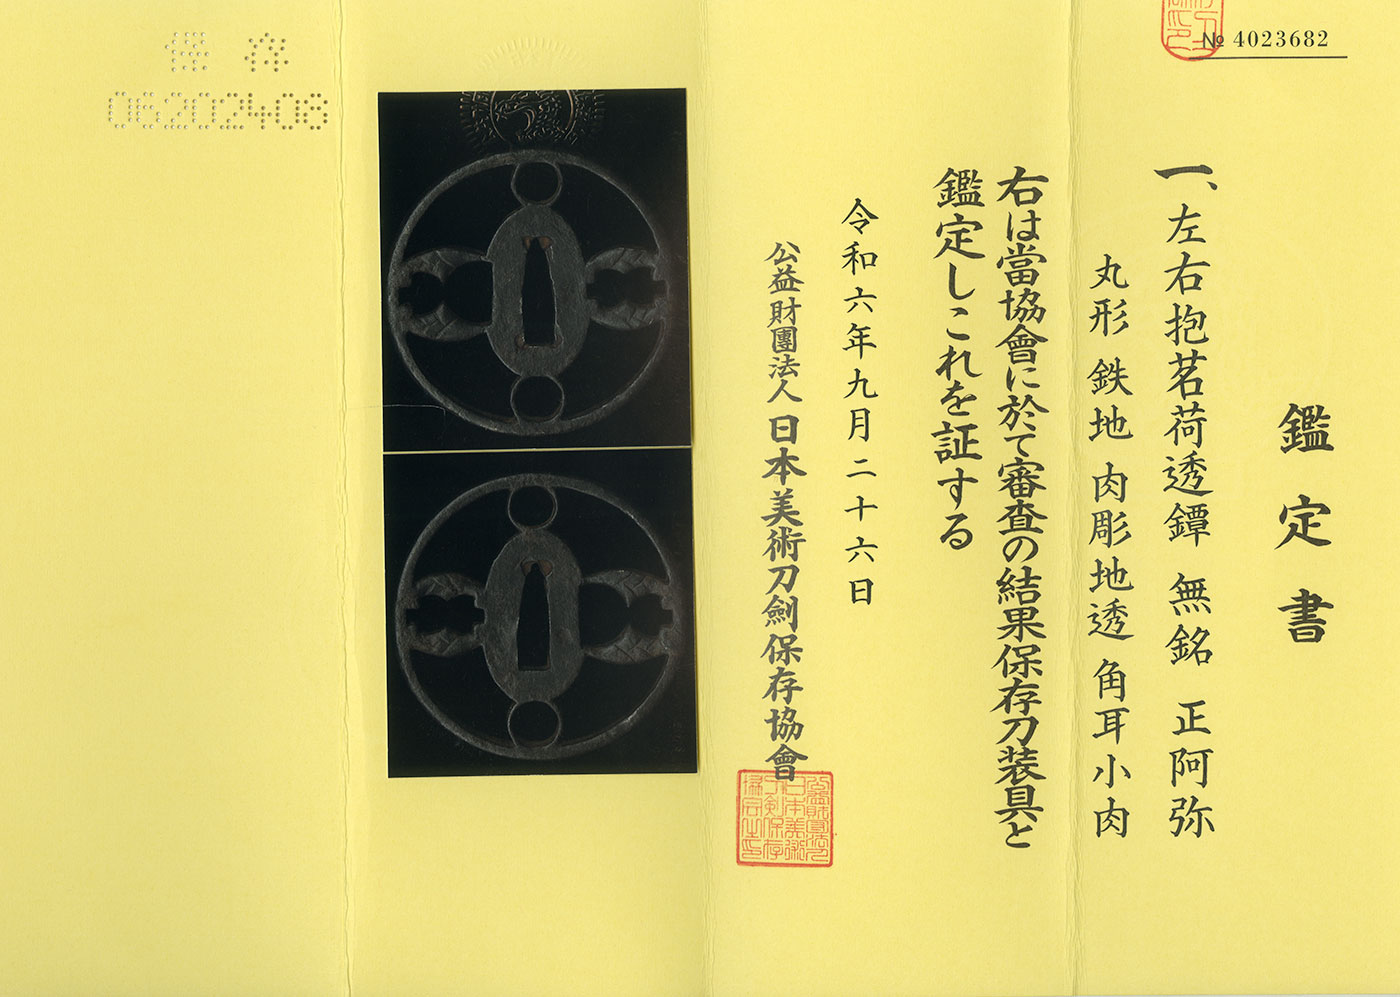 № 4023682
鑑定書
一、左右抱茗荷透鐔 無銘 正阿弥
丸形 鉄地 肉彫地透 角耳小肉
右は當協會に於て審査の結果保存刀装具と
鑑定しこれを証する
令和六年九月二十六日
公益財團法人 日本美術刀劍保存協會
保存
06202408